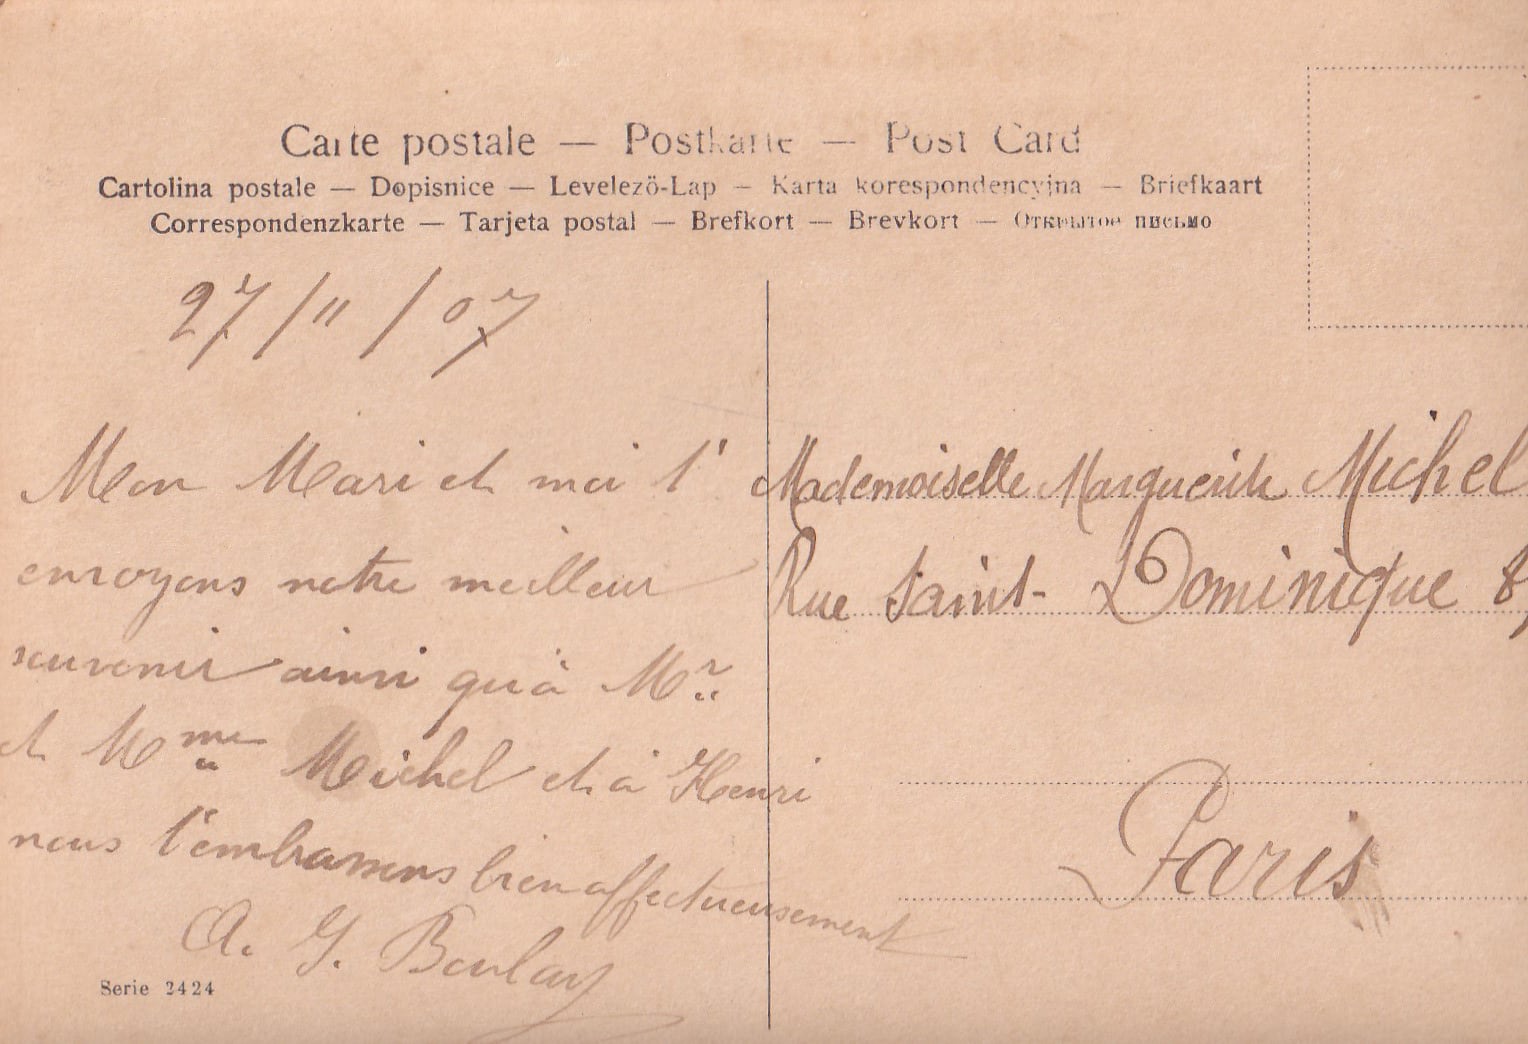 Carte postale — Postkarte — Post Card
Cartolina postale — Dopisnice — Levelező-Lap — Karta korespondencyjna — Briefkaart
Correspondenzkarte — Tarjeta postal — Brefkort — Brevkort — Открытое письмо
27/11/07
Mon Mari et moi t'
envoyons notre meilleur
souvenir ainsi qu'à Mr
et Mme Michel et à Henri
nous t'embrassons bien affectueusement
A. G. Boulay
Serie 2424
Mademoiselle Marguerite Michel
Rue Saint-Dominique
Paris